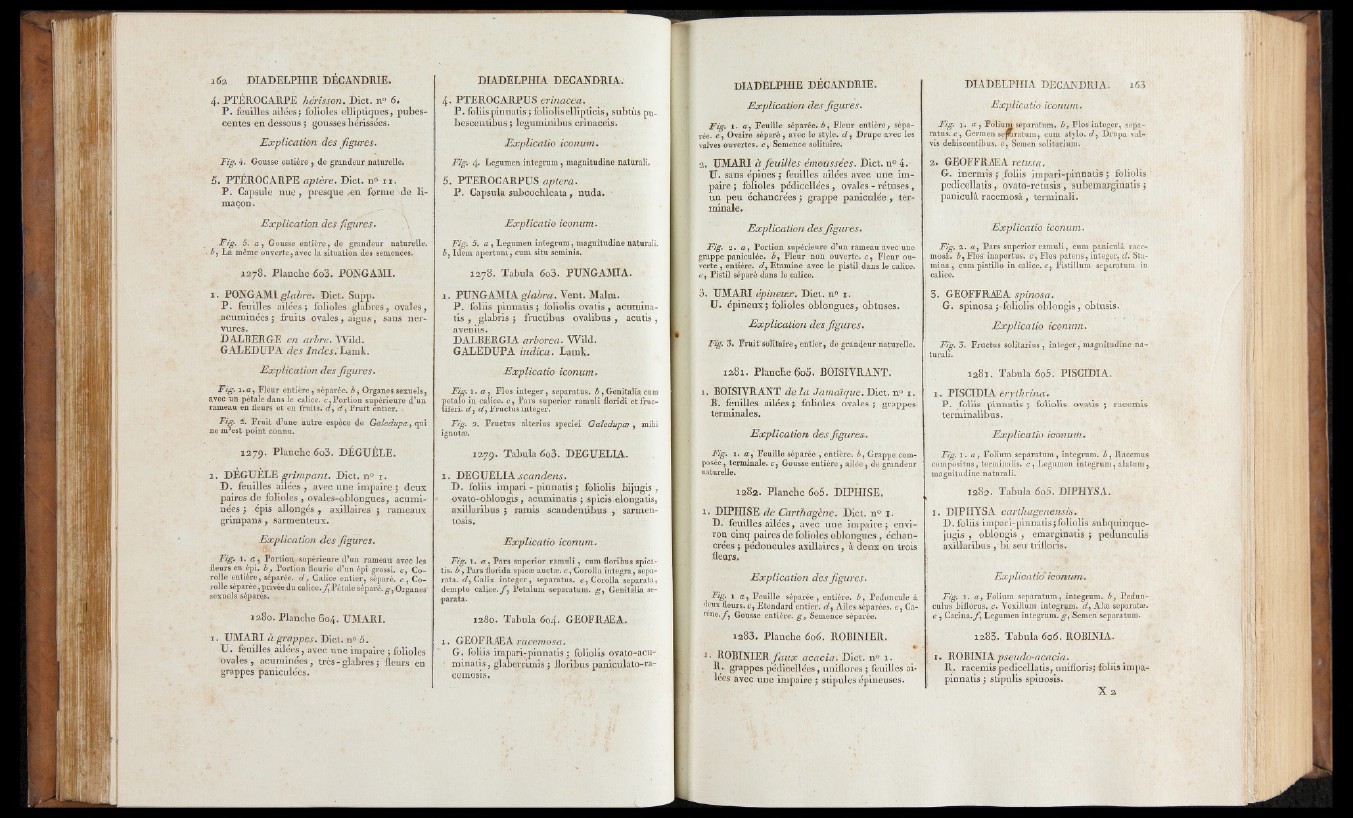 162 DIADELPHIE DÉCANDRIE.
4. PTÉROCARPE hérisson. Dict. n° 6.
P. feuilles ailées; folioles elliptiques, pubes-
centes en dessous; gousses hérissées.
Explication des figures.
Fig. 4. Gousse entière, de grandeur naturelle.
5. PTÉROCARPE aptère. Dict. n° 11.
P. Capsule nue, presque en forme de li-
maçon.
Explication des figures.
Fig. 5. a, Gousse entière, de grandeur naturelle.
b, La même ouverte, avec la situation des semences.
1278. Planche 603. PONGAMI.
1. PONGAMI glabre. Dict. Supp.
P. feuilles ailées; folioles glabres, ovales,
acuminées; fruits ovales, aigus, sans ner-
vures.
DALBERGE en arbre. Wild.
GALEDUPA des Indes. Lamk.
Explication des figures.
Fig. 1. a, Fleur entière, séparée. b, Organes sexuels,
avec un pétale dans le calice. c, Portion supérieure d'un
rameau en fleurs et en fruits. d, d, Fruit entier.
Fig. 2. Fruit d'une autre espèce de Galedupa, qui
ne m'est point connu.
1279. Planche 603. DÉGUÈLE.
1. DÉGUÈLE grimpant. Dict. n° 1.
D. feuilles ailées, avec une impaire; deux
paires de folioles, ovales-oblongues, acumi-
nées; épis allongés, axillaires; rameaux
grimpans, sarmenteux.
Explication des figures.
Fig. 1. a, Portion supérieure d'un rameau avec les
fleurs en épi. b, Portion fleurie d'un épi grossi. c, Co-
rolle entière, séparée. d, Calice entier, séparé. e, Co-
rolle séparée, privée du calice. f, Pétale séparé. g, Organes
sexuels séparés.
1280. Planche 604. UMARI.
1. UMARI à grappes. Dict. n° 5.
U. feuilles ailées, avec une impaire; folioles
ovales, acuminées, très-glabres; fleurs en
grappes paniculées.
DIADELPHIA DECANDRIA.
4. PTEROCARPUS erinacea.
P. foliis pinnatis; foliolis ellipticis, subtùs pu-
bescentibus; leguminibus erinaceis.
Explicatio iconum.
Fig. 4. Legumen integrum, magnitudine naturali.
5. PTEROCARPUS aptera.
P. Capsula subcochleata, nuda.
Explicatio iconum.
Fig. 5. a, Legumen integrum, magnitudine naturali.
b, Idem apertum, cum situ seminis.
1278. Tabula 603. PUNGAMIA.
1. PUNGAMIA glabra. Vent. Malm.
P. foliis pinnatis; foliolis ovatis, acumina-
tis, glabris; fructibus ovalibus, acutis,
aveniis.
DALBERGIA arborea. Wild.
GALEDUPA indica. Lamk.
Explicatio iconum.
Fig. 1. a, Flos integer, separatus. b, Genitalia cum
petalo in calice. c, Pars superior ramuli floridi et fruc-
tiferi. d, d, Fructus integer.
Fig. 2. Fructus alterius speciei Galedupæ, mihi
ignotæ.
1279. Tabula 603. DEGUELIA.
1. DEGUELIA scandens.
D. foliis impari-pinnatis; foliolis bijugis,
ovato-oblongis, acuminatis; spicis elongatis,
axillaribus; ramis scandentibus, sarmen-
tosis.
Explicatio iconum.
Fig. 1. a, Pars superior ramuli, cum floribus spica-
tis. b, Pars florida spicæ auctæ. c, Corolla integra, sepa-
rata. d, Calix integer, separatus. e, Corolla separata,
dempto calice. f, Petalum separatum. g, Genitalia se-
parata.
1280. Tabula 604. GEOFRÆA.
1. GEOFRÆA racemosa.
G. foliis impari-pinnatis; foliolis ovato-acu-
minatis, glaberrimis; floribus paniculato-ra-
cemosis.
DIADELPHIE DÉCANDRIE.
Explication des figures.
Fig. 1. a, Feuille séparée. b, Fleur entière, sépa-
rée. c, Ovaire séparé, avec le style. d, Drupe avec les
valves ouvertes. e, Semence solitaire.
2. UMARI à feuilles émoussées. Dict. n° 4.
U. sans épines; feuilles ailées avec une im-
paire; folioles pédicellées, ovales-rétuses,
un peu échancrées; grappe paniculée, ter-
minale.
Explication des figures.
Fig. 2. a, Portion supérieure d'un rameau avec une
grappe paniculée. b, Fleur non ouverte. c, Fleur ou-
verte, entière. d, Etamine avec le pistil dans le calice.
e, Pistil séparé dans le calice.
3. UMARI épineux. Dict. n° 1.
U. épineux; folioles oblongues, obtuses.
Explication des figures.
Fig. 3. Fruit solitaire, entier, de grandeur naturelle.
1281. Planche 605. BOISIVRANT.
1. BOISIVRANT de la Jamaïque. Dict. n° 1.
B. feuilles ailées; folioles ovales; grappes
terminales.
Explication des figures.
Fig. 1. a, Feuille séparée, entière. b, Grappe com-
posée, terminale. c, Gousse entière, ailée, de grandeur
naturelle.
1282. Planche 605. DIPHISE.
1. DIPHISE de Carthagène. Dict. n° 1.
D. feuilles ailées, avec une impaire; envi-
ron cinq paires de folioles oblongues, échan-
crées; pédoncules axillaires, à deux ou trois
fleurs.
Explication des figures.
Fig. 1 a, Feuille séparée, entière. b, Pedoncule à
deux fleurs. c, Etendard entier. d, Ailes séparées. e, Ca-
rène. f, Gousse entière. g, Semence séparée.
1283. Planche 606. ROBINIER.
1. ROBINIER faux acacia. Dict. n° 1.
R. grappes pédicellées, uniflores; feuilles ai-
lées avec une impaire; stipules épineuses.
DIADELPHIA DECANDRIA. 163
Explicatio iconum.
Fig. 1. a, Folium separatum. b, Flos integer, sepa-
ratus. c, Germen separatum, cum stylo. d, Drupa val-
vis dehiscentibus. e, Semen solitarium.
2. GEOFFRÆA retusa.
G. inermis; foliis impari-pinnatis; foliolis
pedicellatis, ovato-retusis, subemarginatis;
paniculâ racemosâ, terminali.
Explicatio iconum.
Fig. 2. a, Pars superior ramuli, cum paniculâ race-
mosâ. b, Flos inapertus. c, Flos patens, integer. d. Sta-
mina, cum pistillo in calice. e, Pistillum separatum in
calice.
3. GEOFFRÆA spinosa.
G. spinosa; foliolis oblongis, obtusis.
Explicatio iconum.
Fig. 3. Fructus solitarius, integer, magnitudine na-
turali.
1281. Tabula 605. PISCIDIA.
1. PISCIDIA erythrina.
P. foliis pinnatis; foliolis ovatis; racemis
terminalibus.
Explicatio iconum.
Fig. 1. a, Folium separatum, integrum. b, Racemus
compositus, terminalis. c, Legumen integrum, alatum,
magnitudine naturali.
1282. Tabula 605. DIPHYSA.
1. DIPHYSA carthagenensis.
D. foliis impari-pinnatis; foliolis subquinque-
jugis, oblongis, emarginatis; pedunculis
axillaribus, bi seu trifloris.
Explicatio iconum.
Fig. 1. a, Folium separatum, integrum. b, Pedun-
culus biflorus. c, Vexillum integrum. d, Alæ separatæ.
e, Carina. f, Legumen integrum. g, Semen separatum.
1283. Tabula 606. ROBINIA.
1. ROBINIA pseudo-acacia.
R. racemis pedicellatis, unifloris; foliis impa-
pinnatis; stipulis spinosis.
X 2